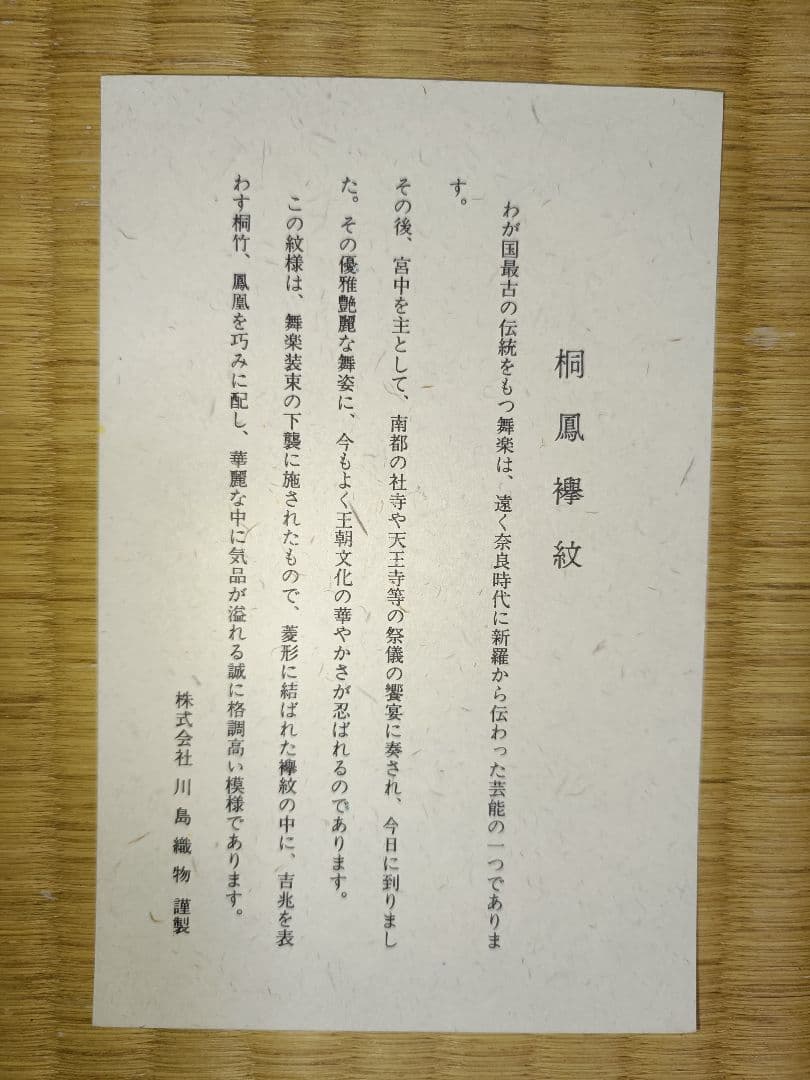 桐鳳襷紋
わが国最古の伝統をもつ舞楽は、遠く奈良時代に新羅から伝わった芸能の一つでありま
す。
その後、宮中を主として、南都の社寺や天王寺等の祭儀の饗宴に奏され、今日に到りまし
た。その優雅艶麗な舞姿に、今もよく王朝文化の華やかさが忍ばれるのであります。
この紋様は、舞楽装束の下襲に施されたもので、菱形に結ばれた襷紋の中に、吉兆を表
わす桐竹、鳳凰を巧みに配し、華麗な中に気品が溢れる誠に格調高い模様であります。
株式会社 川島織物 謹製